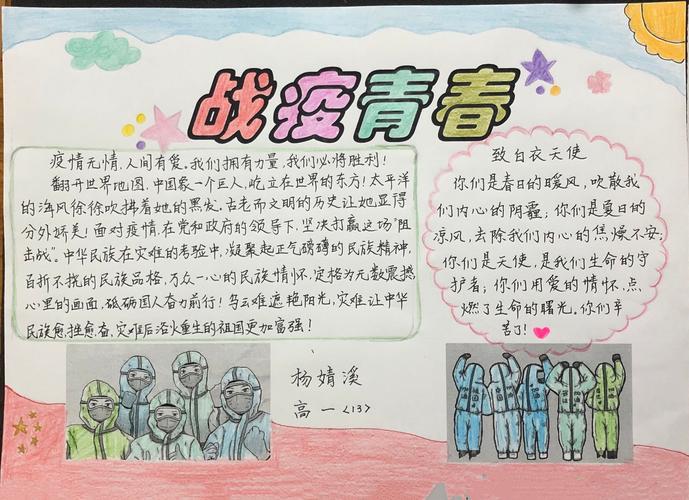 战疫青春
疫情无情，人间有爱。我们拥有力量，我们必将胜利！
翻开世界地图，中国象一个巨人，屹立在世界的东方！太平洋
的海风徐徐吹拂着她的黑发。古老而文明的历史让她显得
分外娇美！面对疫情，在党和政府的领导下，坚决打赢这场“阻
击战”。中华民族在灾难的考验中，凝聚起正气磅礴的民族精神，
百折不挠的民族品格，万众一心的民族情怀，定格为无数震撼
心里的画面，砥砺国人奋力前行！乌云难遮艳阳光，灾难让中华
民族愈挫愈奋，灾难后浴火重生的祖国更加富强！
致白衣天使
你们是春日的暖风，吹散我
们内心的阴霾；你们是夏日的
凉风，去除我们内心的焦燥不安；
你们是天使，是我们生命的守
护者；你们用爱的情怀，点
燃了生命的曙光。你们辛
苦了！
杨婧溪
高一〈13〉